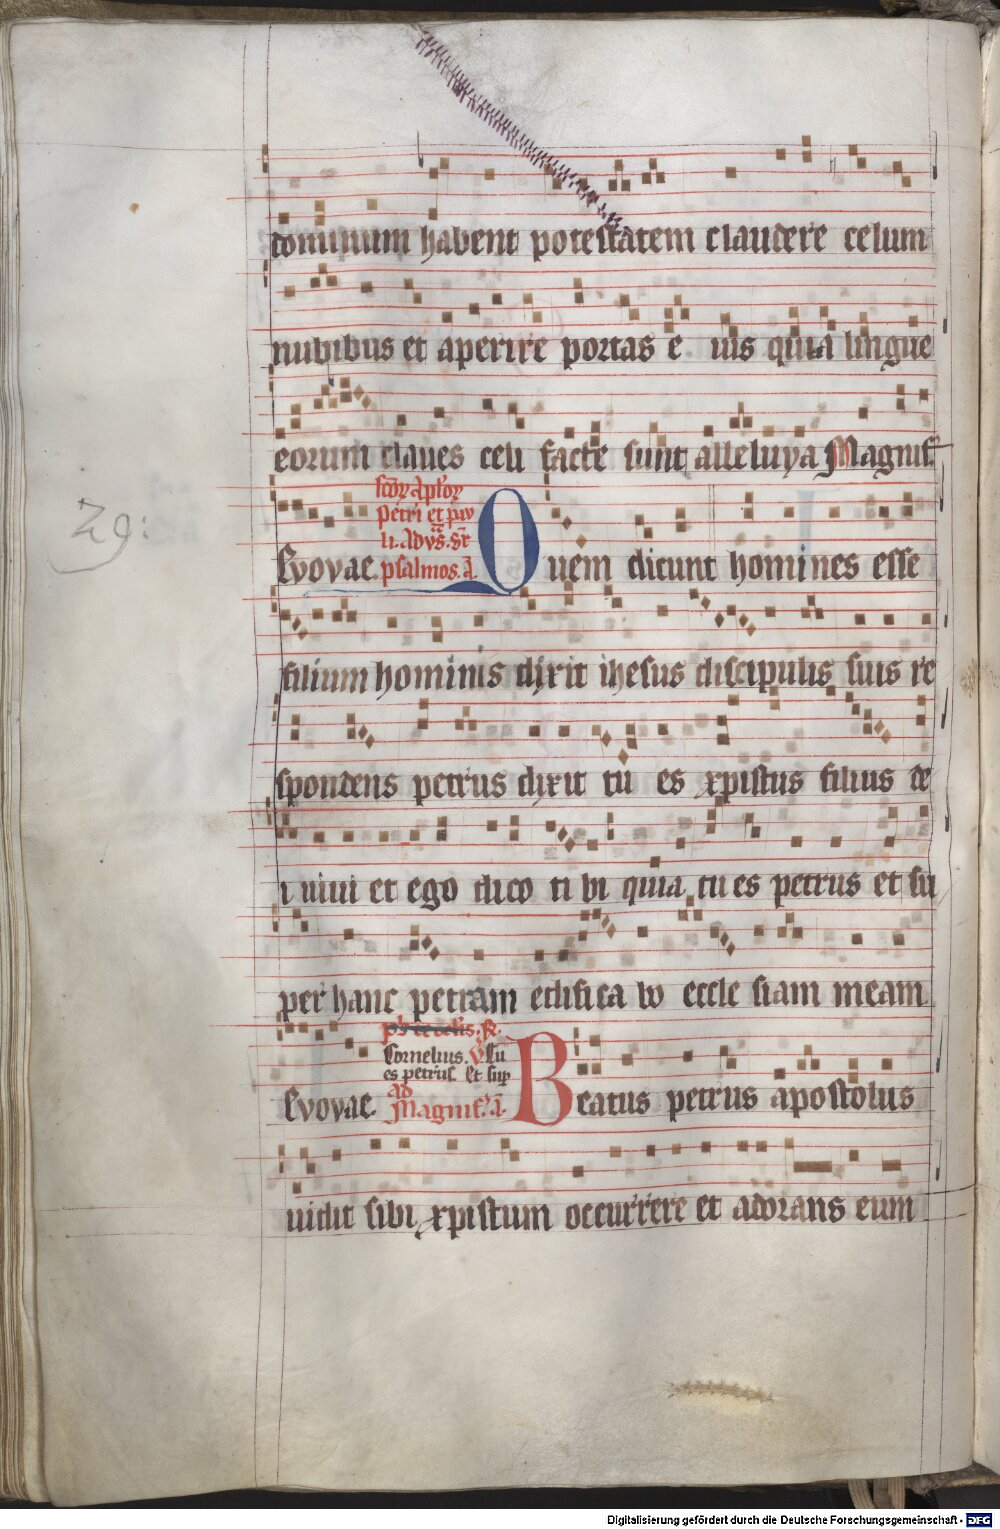 dominum habent potestatem claudere celum
nubibus et aperire portas e ius quia lingue
eorum claues celi facte sunt alleluya Magnif.
29:
scōꝝ aplōꝝ
Petri et pau
li. Ad vs. sr
psalmos. a.
Evovae. Quem dicunt homines esse
filium hominis dixit ihesus discipulis suis re
spondens petrus dixit tu es xpistus filius de
i uiui et ego dico ti bi quia tu es petrus et su
per hanc petram edifica bo eccle siam meam.
Cornelius. V. Tu
es petrus. Et sup
Ad
Magnif. a.
Evovae. Beatus petrus apostolus
uidit sibi xpistum occurrere et adorans eum
Digitalisierung gefördert durch die Deutsche Forschungsgemeinschaft - DFG